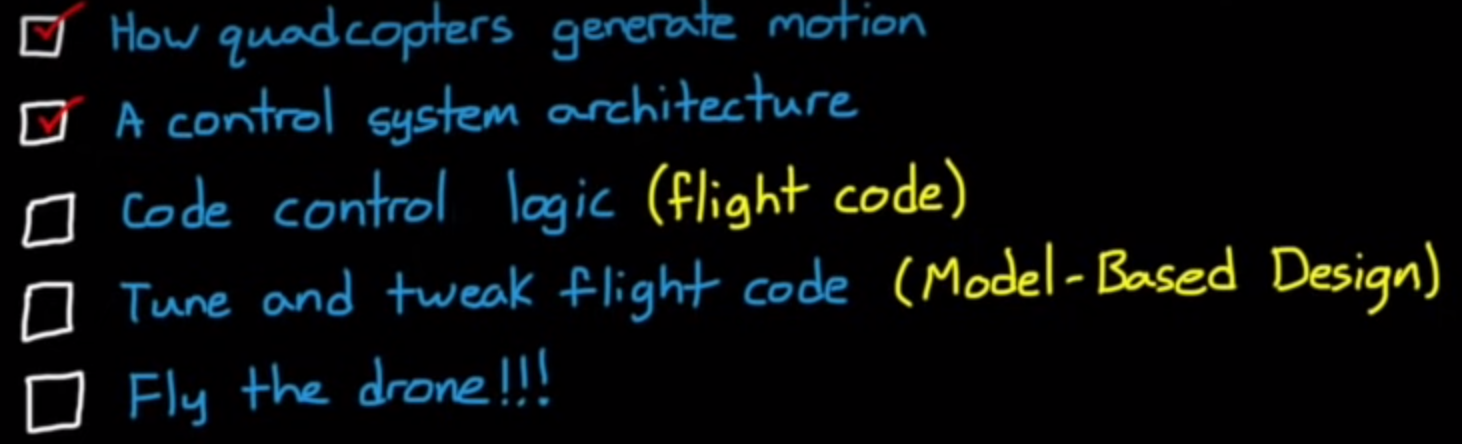 How quadcopters generate motion
A control system architecture
Code control logic (flight code)
Tune and tweak flight code (Model-Based Design)
Fly the drone!!!